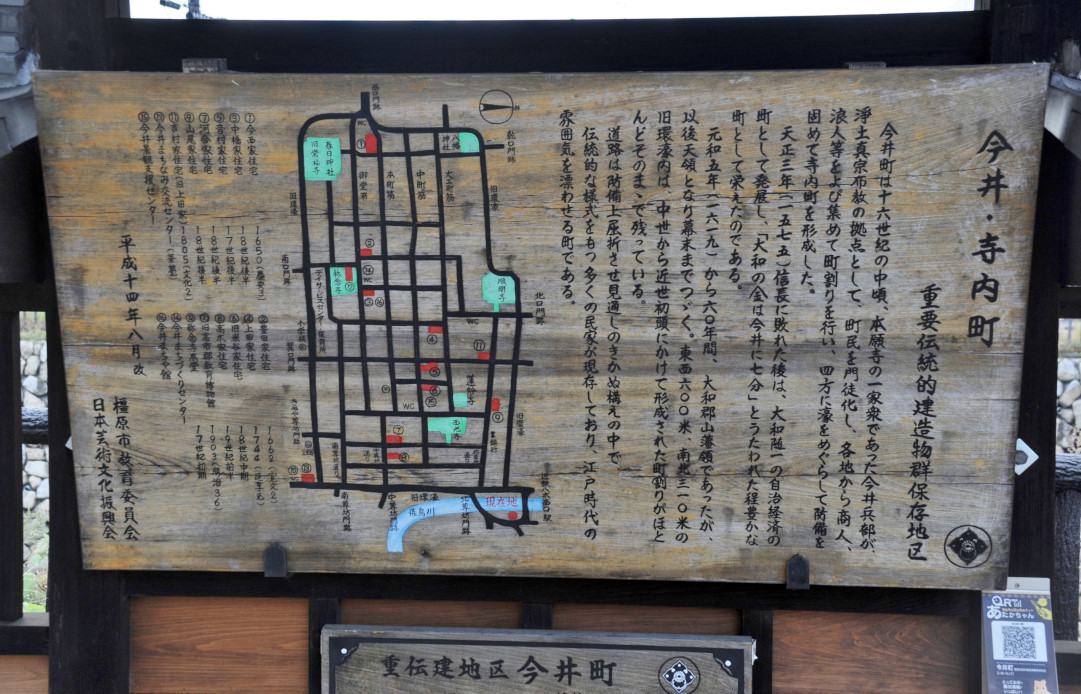 今井・寺内町
重要伝統的建造物群保存地区
今井町は十六世紀の中頃、本願寺の一家衆であった今井兵部が、
浄土真宗布教の拠点として、町民を門徒化し、各地から商人、
浪人等をよび集めて町割りを行い、四方に濠をめぐらして防備を
固めて寺内町を形成した。
天正三年(一五七五)信長に敗れた後は、大和随一の自治経済の
町として発展し、「大和の金は今井に七分」とうたわれた程豊かな
町として栄えたのである。
元和五年(一六一九)から六〇年間、大和郡山藩領であったが、
以後天領となり幕末までつゞく。東西六〇〇米、南北三一〇米の
旧環濠内は、中世から近世初頭にかけて形成された町割りがほと
んどそのまゝで残っている。
道路は防備上屈折させ見通しのきかぬ構えの中で、
伝統的な様式をもつ多くの民家が現存しており、江戸時代の
雰囲気を漂わせる町である。
N
西口門跡
乾口門跡
八幡神社
春日神社
旧常福寺
御堂筋
本町筋
中町筋
大工町筋
旧環濠
旧環濠
南口門跡
北口門跡
称念寺
順明寺
蓮妙寺
西光寺
巽口門跡
旧環濠
WC
WC
WC
現在地
飛鳥川
①今西家住宅 1650(慶安3)
③中橋家住宅 18世紀後半
⑤音村家住宅 17世紀後半
⑦河合家住宅 18世紀後半
⑨山尾家住宅 18世紀後半
⑪吉村家住宅(旧上田家) 1805(文化2)
⑬今井まちなみ交流センター(華甍)
⑮今井景観支援センター
②豊田家住宅 1662(寛文2)
④上田家住宅 1744(延享元)
⑥旧米谷家住宅 18世紀中期
⑧高木家住宅 19世紀前半
⑩旧高市郡教育博物館 1903(明治36)
⑫称念寺本堂 17世紀初期
⑭今井まちづくりセンター
⑯今井まちや館
平成十四年八月改
橿原市教育委員会
日本芸術文化振興会
重伝建地区 今井町
QRTrl
あたかちゃん
今井町